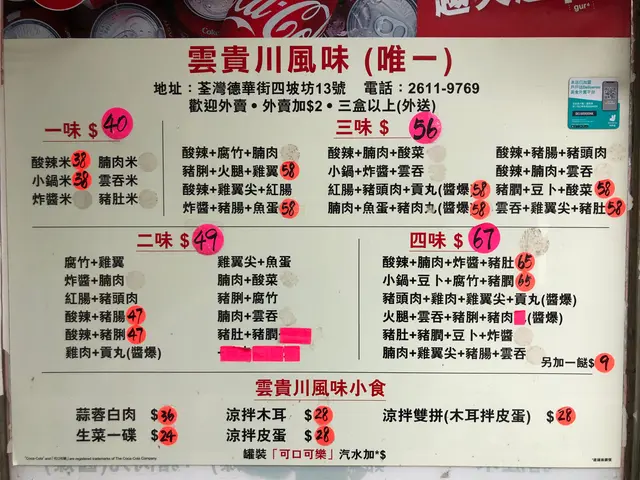 gur
雲貴川風味 (唯一)
地址：荃灣德華街四坡坊13號 電話：2611-9769
歡迎外賣•外賣加$2•三盒以上(外送)
一味 $ 40
酸辣米 38 腩肉米
小鍋米 38 雲吞米
炸醬米 豬肚米
三味 $ 56
酸辣+腐竹+腩肉
豬脷+火腿+雞翼 58
酸辣+雞翼尖+紅腸
炸醬+豬腸+魚蛋 58
酸辣+腩肉+酸菜
小鍋+炸醬+雲吞
紅腸+豬頭肉+貢丸(醬爆) 58
腩肉+魚蛋+豬肉丸(醬爆) 58
酸辣+豬腸+豬頭肉
豬膶+豆卜+酸菜 58
雲吞+雞翼尖+豬肚 58
二味 $ 49
腐竹+雞翼
炸醬+腩肉
紅腸+豬頭肉
酸辣+豬腸 47
酸辣+豬脷 47
雞肉+貢丸(醬爆)
雞翼尖+魚蛋
腩肉+酸菜
豬脷+腐竹
腩肉+雲吞
豬肚+豬膶
四味 $ 67
酸辣+腩肉+炸醬+豬肚 65
小鍋+豆卜+腐竹+豬膶 65
豬頭肉+雞肉+雞翼尖+貢丸(醬爆)
火腿+雲吞+豬脷+豬肉 (醬爆)
豬肚+豬膶+豆卜+炸醬
腩肉+雞翼尖+豬腸+雲吞
另加一餸$ 9
雲貴川風味小食
蒜蓉白肉 $36 涼拌木耳 $28 涼拌雙拼(木耳拌皮蛋) $28
生菜一碟 $24 涼拌皮蛋 $28
罐裝「可口可樂」汽水加*$